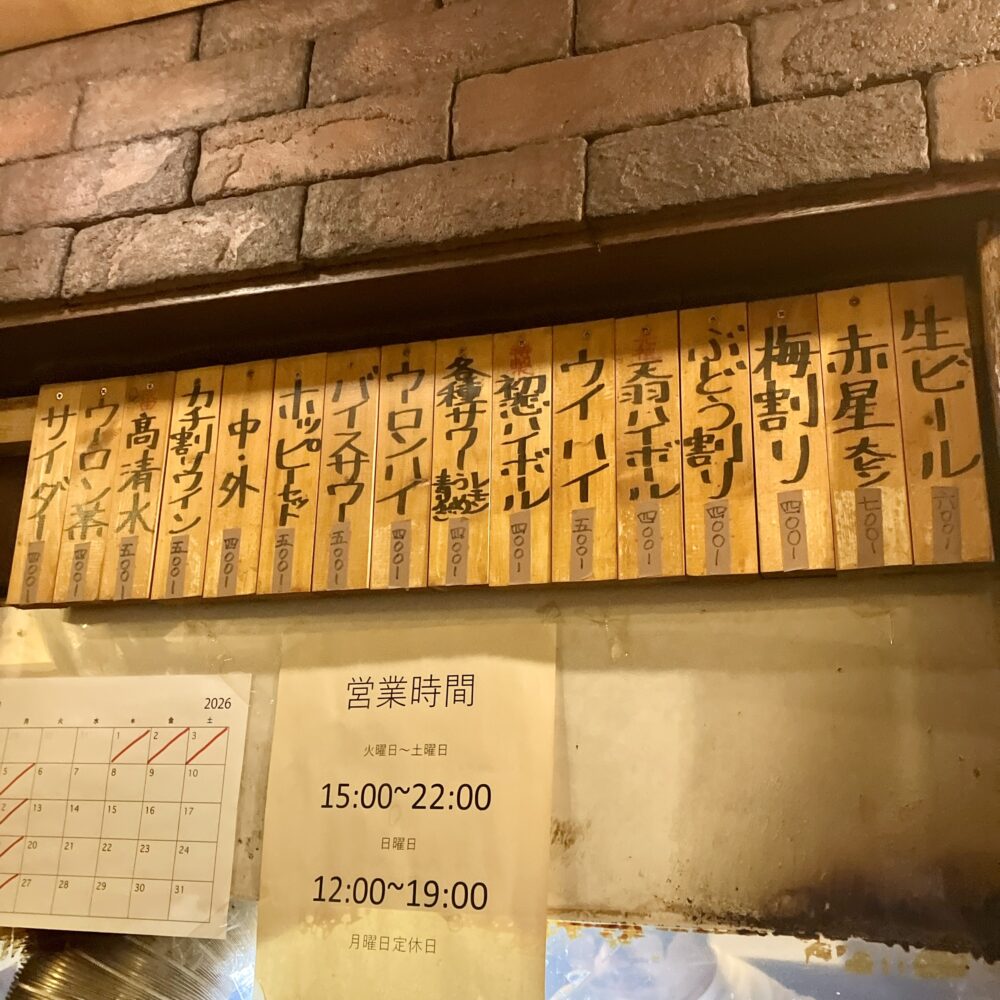 生ビール
六〇〇ー
赤星 大ビン
七〇〇ー
梅割リ
四〇〇ー
ぶどう割リ
四〇〇ー
天羽ハイボール
四〇〇ー
ウイハイ
五〇〇ー
初恋ハイボール
四〇〇ー
各種サワー
レモン
うめ
四〇〇ー
ウーロンハイ
四〇〇ー
バイスサワー
五〇〇ー
ホッピーセット
五〇〇ー
中・外
四〇〇ー
カチ割リワイン
五〇〇ー
高清水
五〇〇ー
ウーロン茶
四〇〇ー
サイダー
四〇〇ー
2026
月 火 水 木 金 土
1 2 3
5 6 7 8 9 10
13 14 15 16 17
20 21 22 23 24
27 28 29 30 31
営業時間
火曜日〜土曜日
15:00~22:00
日曜日
12:00~19:00
月曜日定休日